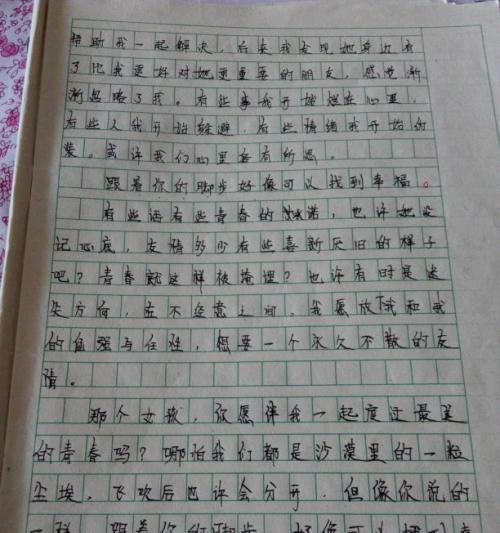 帮助我一起解决，后来我发现她身边有
了比我更好对她更重要的朋友，感觉渐
渐忽略了我。有些事我开始埋在心里，
有些人我开始躲避，有些情绪我开始伪
装。或许我们心里各有所思。
跟着你的脚步好像可以找到幸福。
有些话有些青春的承诺，也许把
记心底，友情多少有些喜新厌旧的样子
吧？青春就这样被掩埋？也许有时是迷
失方向，在不经意之间。我愿放下我和我
的倔强与任性，想要一个永久不散的友
情。
那个女孩，你愿陪我一起度过最美
的青春吗？哪怕我们都是沙漠里的一粒
尘埃。飞吹后也许会分开，但像你说的
一样，跟着你的脚步，好像可以找到幸